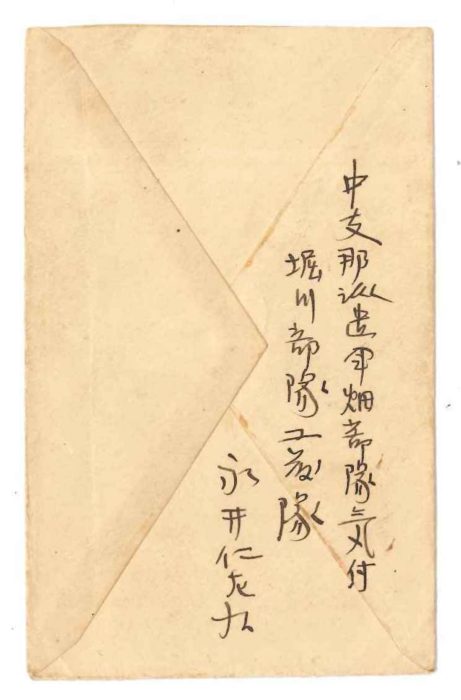 中支那派遣軍畑部隊気付
堀川部隊工藤隊
永井仁